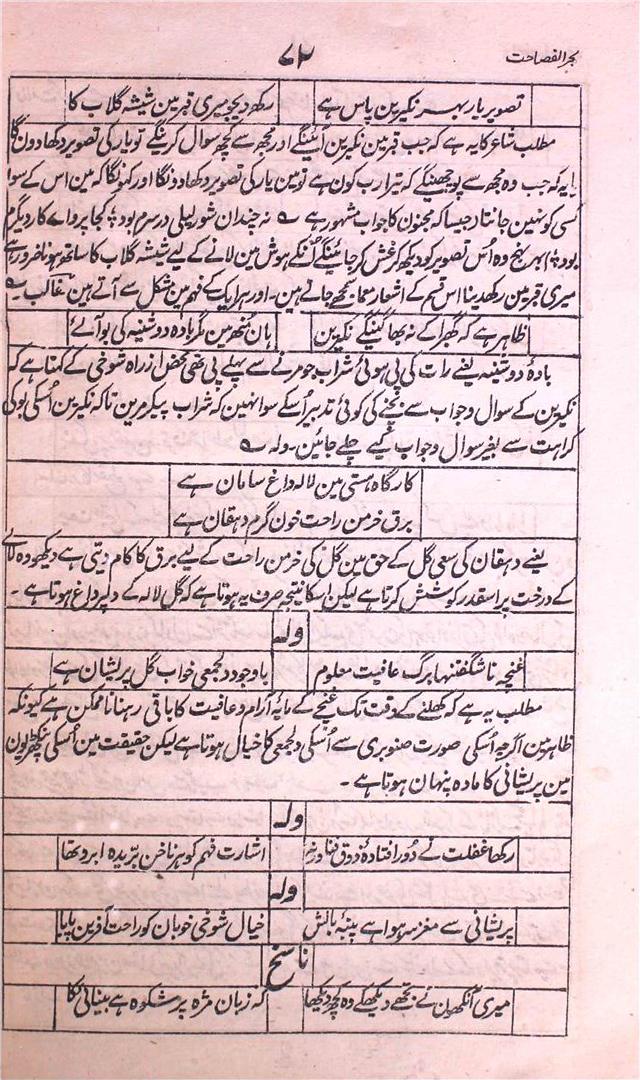 بحر الفصاحت
۷۲
تصویر یار بہر نکیرین پاس ہے رکھ دیجو میری قبر مین شیشہ گلاب کا
مطلب شاعر کا یہ ہے کہ جب قبر مین نکیرین آئینگے اور مجھ سے کچھ سوال کرینگے تو یار کی تصویر دکھادونگا
یا یہ کہ جب وہ مجھ سے پوچھینگے کہ تیرا رب کون ہے تو مین یار کی تصویر دکھادونگا اور کہونگا کہ مین اس کے سوا
کسی کو نہین جانتا جیسا کہ مجنون کا جواب مشہور ہے ؎ نہ چندان شور لیلی در سرم بود ؛ کہ پرواے کار دیگرم
بود ؛ پھر وہ اُس تصویر کو دیکھ کر غش کر جائینگے اُنکے ہوش مین لانے کے لیے شیشہ گلاب کا ساتھ ہونا ضرور ہے
میری قبر مین رکھدینا اس قسم کے اشعار معما سمجھے جاتے ہین۔ اور ہر ایک کے فہم مین مشکل سے آتے ہین غالب ؎
ظاہر ہے کہ گھبرا کے نہ بھاگینگے نکیرین ہان منھ مین مگر بادہ دوشینہ کی بو آئے
بادۂ دوشینہ یعنے رات کی پی ہوئی شراب جو مرنے سے پہلے پی تھی محض ازراہ شوخی کے کہتا ہے کہ
نکیرین کے سوال و جواب سے بچنے کی کوئی تدبیر اُسکے سوا نہین کہ شراب پیکر مرین تاکہ نکیرین اُسکی بو کی
کراہت سے بغیر سوال و جواب کیے چلے جائین۔ ولہ ؎
کارگاہ ہستی مین لالہ داغ سامان ہے
برق خرمن راحت خون گرم دہقان ہے
یعنے دہقان کی سعی گل کے حق مین گل کی خرمن راحت کے لیے برق کا کام دیتی ہے دیکھو وہ لالے
کے درخت پر اسقدر کوشش کرتا ہے لیکن اسکا نتیجہ صرف یہ ہوتا ہے کہ گل لالہ کے دلپر داغ ہوتا ہے ۔
ولہ
غنچہ ناشگفتنہا برگ عافیت معلوم باوجود دلجمعی خواب گل پریشان ہے
مطلب یہ ہے کہ کھلنے کے وقت تک غنچے کے مایۂ آرام و عافیت کا باقی رہنا ناممکن ہے کیونکہ
ظاہر مین اگرچہ اُسکی صورت صنوبری سے اُسکی دلجمعی کا خیال ہوتا ہے لیکن حقیقت مین اُسکی پنکھڑیون
مین پریشانی کا مادہ پنہان ہوتا ہے ۔
ولہ
رکھا غفلت نے دور افتادۂ ذوق فنا ورنہ اشارت فہم کو ہر ناخن بریدہ ابرو تھا
ولہ
پریشانی سے مغز سر ہوا ہے پنبۂ بالش خیال شوخی خوبان کو راحت آفرین پایا
ناسخ
میری آنکھون نے تجھے دیکھکے وہ کچھ دیکھا کہ زبان مژہ پر شکوہ ہے بینائی کا